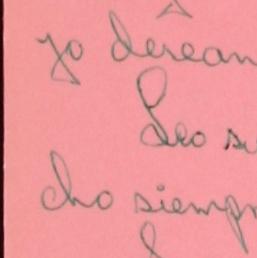 yo derean
Leo su
cho siempr